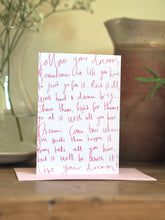 Follow your dreams
Sometimes in life you have
to just go for it. Risk it all
work hard & dream big.
Chase them, fight for them &
go at it with all you have.
Dreams come true when
you make them happen. It
may take all you have
but it will be worth it.
Live your dreams